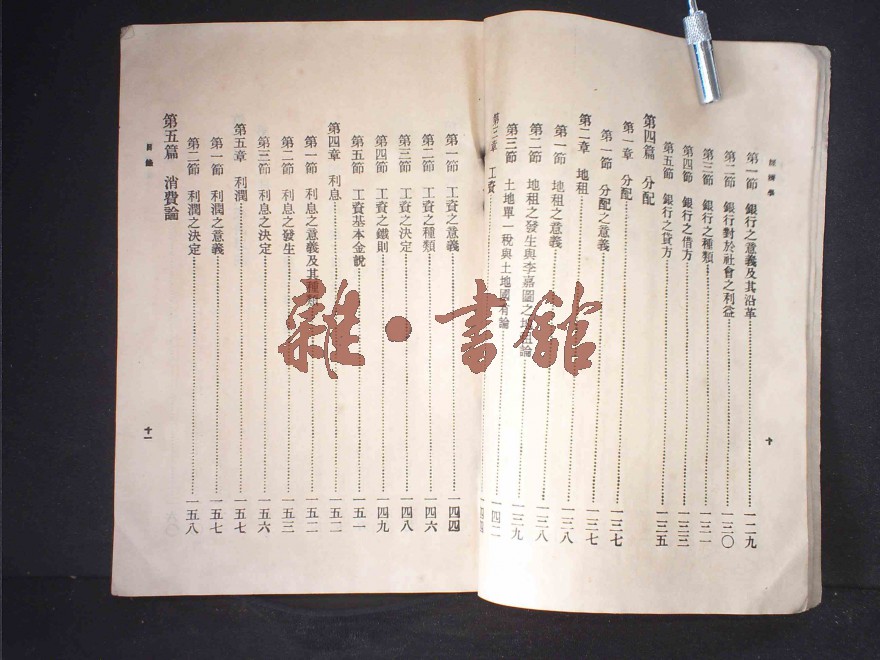 經濟學
第一節 銀行之意義及其沿革 一二九
第二節 銀行對於社會之利益 一三〇
第三節 銀行之種類 一三一
第四節 銀行之借方 一三三
第五節 銀行之貸方 一三五
第四篇 分配
第一章 分配 一三七
第一節 分配之意義 一三七
第二章 地租 一三八
第一節 地租之意義 一三八
第二節 地租之發生與李嘉圖之地租論 一三九
第三節 土地單一稅與土地國有論 一四二
第三章 工資 一四四
十
目錄
第一節 工資之意義 一四四
第二節 工資之種類 一四六
第三節 工資之決定 一四八
第四節 工資之鐵則 一四九
第五節 工資基本金說 一五一
第四章 利息 一五二
第一節 利息之意義及其種類 一五二
第二節 利息之發生 一五三
第三節 利息之決定 一五六
第五章 利潤 一五七
第一節 利潤之意義 一五七
第二節 利潤之決定 一五八
第五篇 消費論
十一
雜·書館